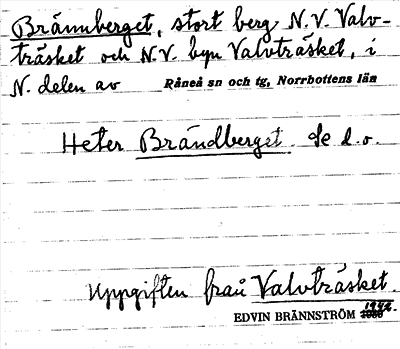 Brännberget, stort berg N.V. Valv-
träsket och N.V. byn Valvträsket, i
N. delen av Råneå sn och tg, Norrbottens län
Heter Brändberget. Se d.o.
Uppgiften från Valvträsket.
EDVIN BRÄNNSTRÖM 1942.